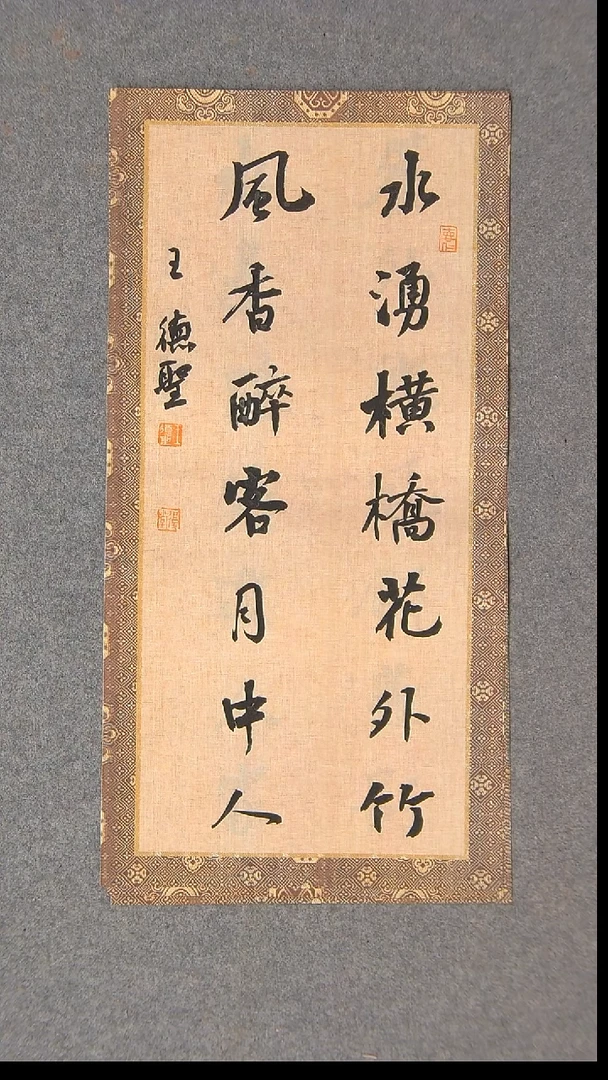 水湧橫橋花外竹
風香醉客月中人
王德聖